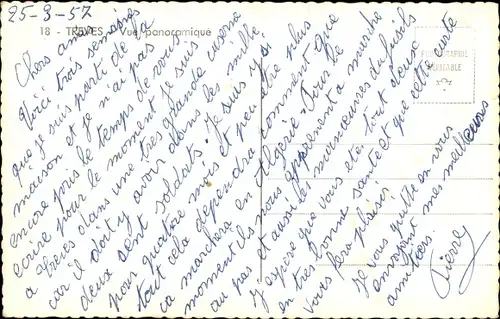 25-3-57
18 - TRÈVES - Vue panoramique
Chers amis
Voici trois semaines
que je suis parti de la
maison et je n'ai pas
encore pris le temps de vous
écrire pour le moment je suis
a Trèves dans une très grande caserne
car il doit y avoir dans les mille
deux cent soldats. Je suis ici
pour quatre mois et peut être plus
tout cela dépendra comment que
ça marchera en Algérie. Pour le
moment ils nous apprennent a marcher
au pas et aussi les manœuvres du fusils
J'espère que vous êtes tout deux
en très bonne santé et que cette carte
vous fera plaisir
Je vous quitte en vous
envoyant mes meilleures
amitiés.
Pierre
PHOTOGRAPHIE
VÉRITABLE